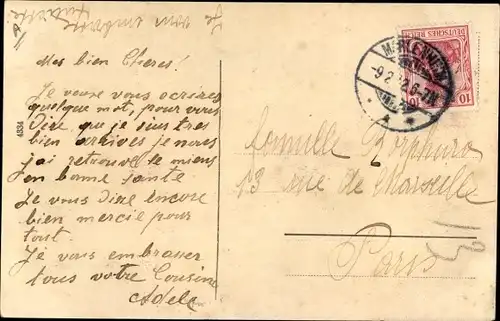 Je vous embrasse
Mes bien Cheres!
Je veux vous ecrires
quelque mot, pour vous
Dire que je suis tres
bien arrives je nous
j'ai retrouvel te miens
en bonne sante
Je vous Dire encore
bien mercie pour
tout.
Je vous embrasser
tous votre Cousine
Adele
4334
DEUTSCHES REICH
10 10
-9.2.12.6-7N
Famille
13 rue de Marseille
Paris